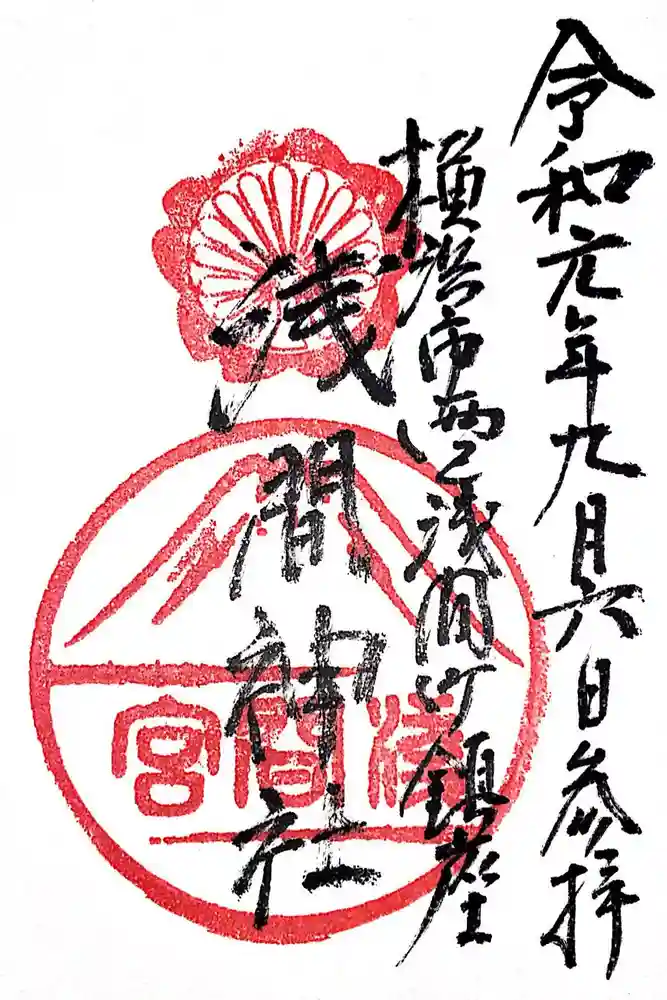 令和元年九月六日参拝
横浜市西区浅間町鎮座
浅間神社
浅間宮